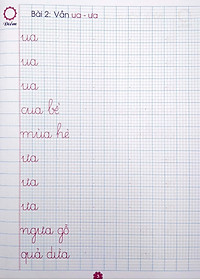 Điểm
Bài 2: Vần ua - ưa
ua
ua
ua
cua bể
mùa hè
ưa
ưa
ưa
ngựa gỗ
quả dứa